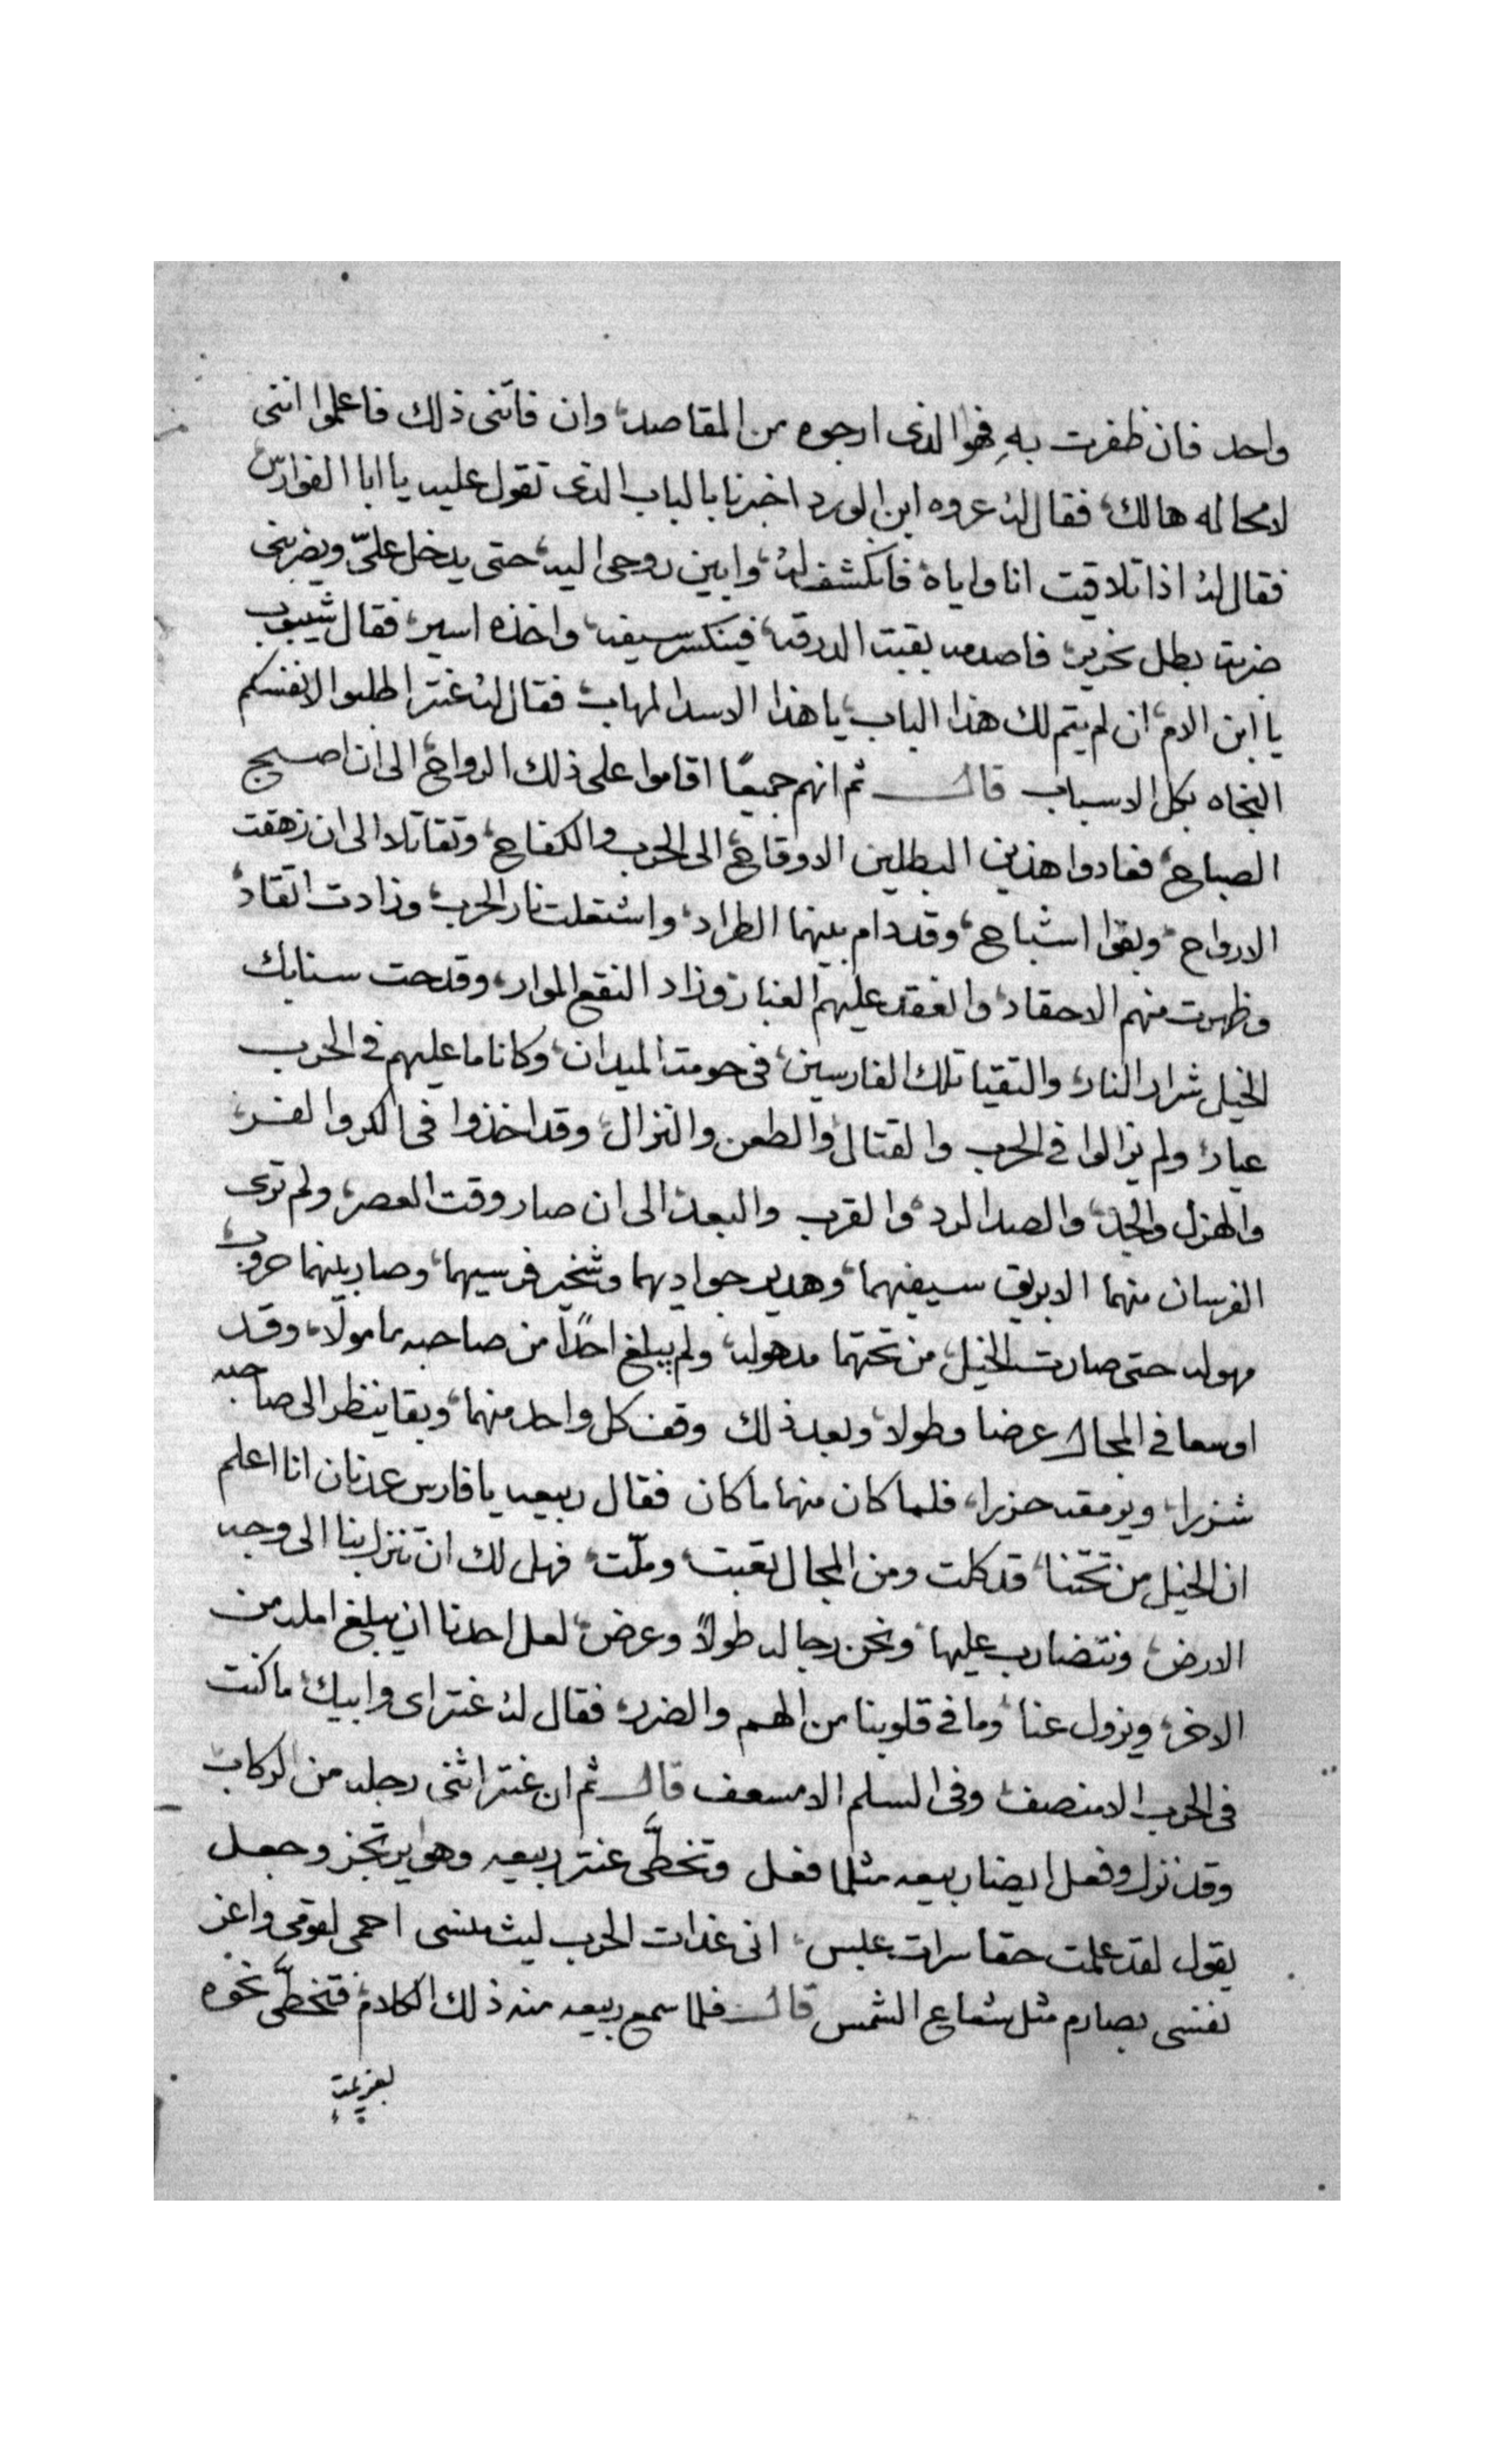 واحد فان ظفرت بهِ فهوا الذى ارجوه من المقاصد، وان فاتنى ذلك فاعلموا اننى
لامحاله هالك، فقال لهُ عروه ابن الورد اخبرنا بالباب الذى تقول عليه يا ابا الفوارس
فقال لهُ اذا تلاقيت انا واياه فانكشف لهُ، وابين روحى اليه، حتى يدخل علىّ ويضربنى
ضربت بطل نحرير، فاصدمه بقبت الدرقه، فينكسر سيفه، واخذه اسير، فقال شيبوب
يا ابن الام، ان لم يتم لك هذا الباب، يا هذا الاسد المهاب، فقال لهُ عنتر اطلبوا لانفسكم
النجاه بكل الاسباب قال ثم انهم جميعًا اقاموا على ذلك الرواح، الى ان اصبح
الصباح، فعادوا هذين البطلين الاوقاح، الى الحرب والكفاح، وتقاتلا الى ان زهقت
الارواح، وبقوا اشباح، وقد دام بينهما الطراد، واشتعلت نار الحرب، وزادت اتقاد،
وظهرت منهم الاحقاد، وانعقد عليهم الغبار، وزاد النقع الموار، وقدحت سنابك
الخيل شرار النار، والتقيا تلك الفارسين، فى حومت الميدان، وكانا ما عليهم فى الحرب
عيار، ولم يزالوا فى الحرب والقتال، والطعن والنزال، وقد اخذوا فى الكر والفر،
والهزل والجد، والصد الرد، والقرب والبعد، الى ان صار وقت العصر، ولم ترى
الفرسان منهما الا بريق سيفهما، وهدير جواديهما وشخير فرسيهما، وصار بينهما حروب،
مهوله حتى صارت الخيل، من تحتهما مدهوله، ولم يبلغ احدًا من صاحبه مامولا، وقد
اوسعا فى المجال عرضا وطولا، وبعد ذلك وقف كل واحد منهما، وبقا ينظر الى صاحبه
شزرا، ويرمقه حزرا، فلما كان منهما ما كان فقال ربيعه يا فارس عدنان انا اعلم
ان الخيل من تحتنا، قد كلت ومن المجال تعبت، وملّت، فهل لك ان تنزل بنا الى وجه
الارض، ونتضارب عليها، ونحن رجاله طولاً وعرض، لعل احدنا ان يبلغ امله من
الاخر، ويزول عنا، وما فى قلوبنا من الهم والضرر، فقال لهُ عنتر اى وابيك، ما كنت
فى الحرب الا منصف، وفى السلم الا مسعف قال ثم ان عنتر اثنى رجله من الركاب،
وقد نزل وفعل ايضا ربيعه مثلما فعل وتخطَّى عنتر ربيعه وهو يرتجز وجعل
يقول لقد علمت حقا سرات عبس، انى غدات الحرب ليث منسى احمى لقومى واعز
نفسى بصارم مثل شعاع الشمس قال فلما سمع ربيعه منه ذلك الكلام، فتخطَّى نحوه
بعزيمت